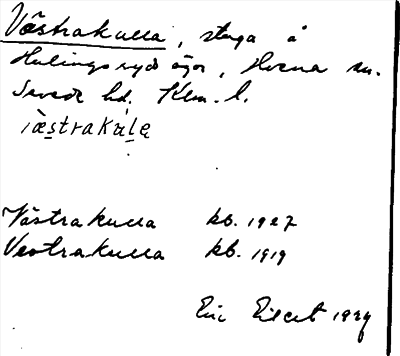 Västrakulla, stuga å
Hulingsryds ägor, Horna sn.
Sevede hd. Klm. l.
Västrakulla kb. 1927
Vestrakulla kb. 1919
Eric 1929